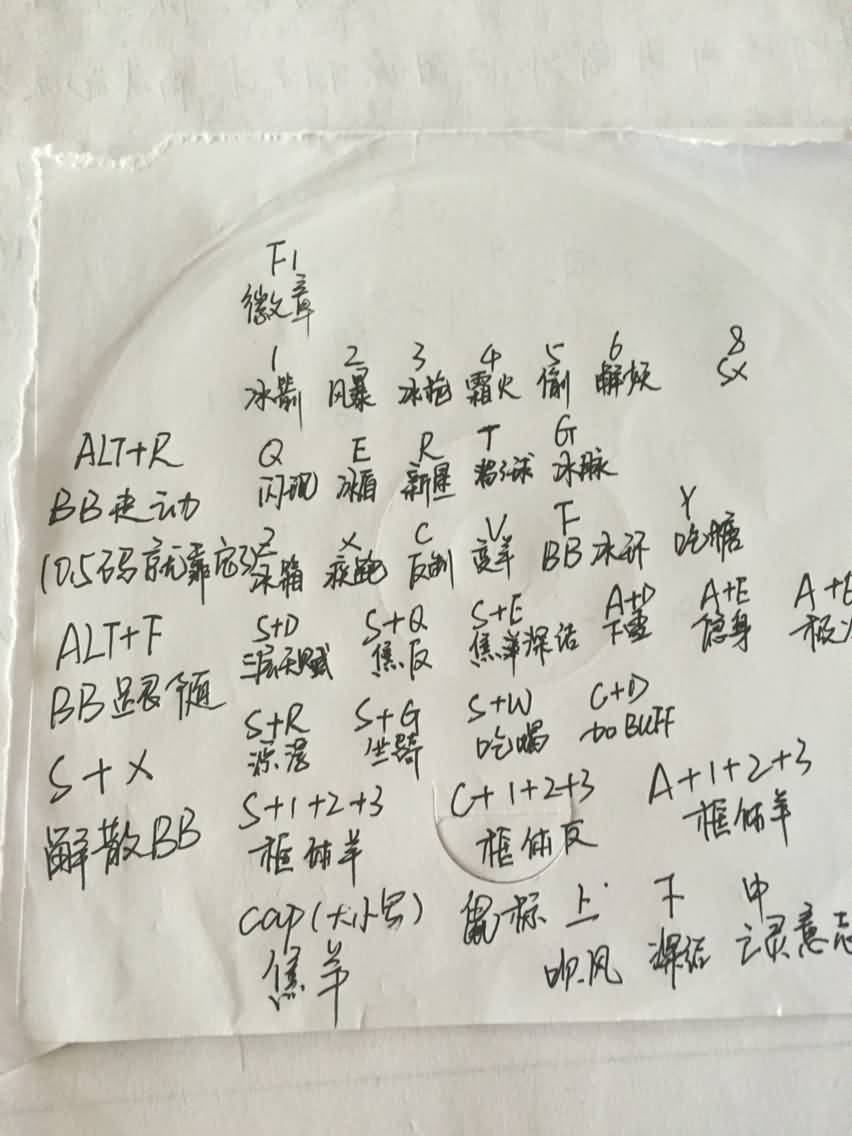 F1
徽章
1 2 3 4 5 6 8
冰箭 风暴 冰枪 霜火 偷 解 SX
ALT+R Q E R T G
BB走动 闪现 冰盾 新星 冰脉
Z X C V F Y
10.5码就靠它了 冰箱 疾跑 反制 变羊 BB冰环 吃糖
ALT+F S+D S+Q S+E A+D A+E A+E
BB跟随 三层天赋 焦反 焦羊深结 下雪 隐身 极冰
S+R S+G S+W C+D
坐骑 吃喝 加BUFF
S+X S+1+2+3 C+1+2+3 A+1+2+3
解散BB 框体羊 框体反 框体羊
cap(大小写) 鼠标 上 下 中
焦羊 吹风 深结 亡灵意志